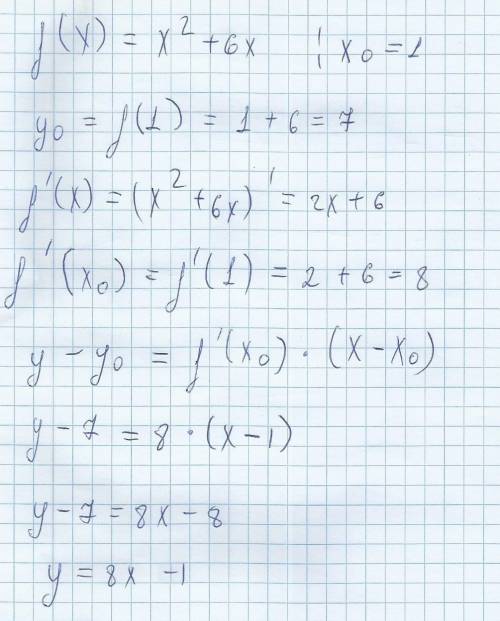 f(x) = x² + 6x ; x₀ = 1
y₀ = f(1) = 1 + 6 = 7
f'(x) = (x² + 6x)' = 2x + 6
f'(x₀) = f'(1) = 2 + 6 = 8
y - y₀ = f'(x₀) · (x - x₀)
y - 7 = 8 · (x - 1)
y - 7 = 8x - 8
y = 8x - 1